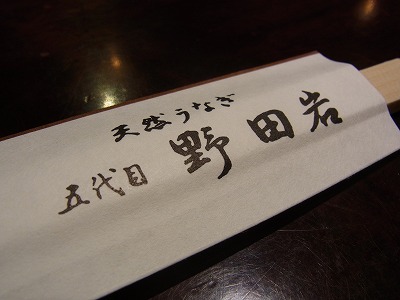 天然うなぎ
五代目 野田岩